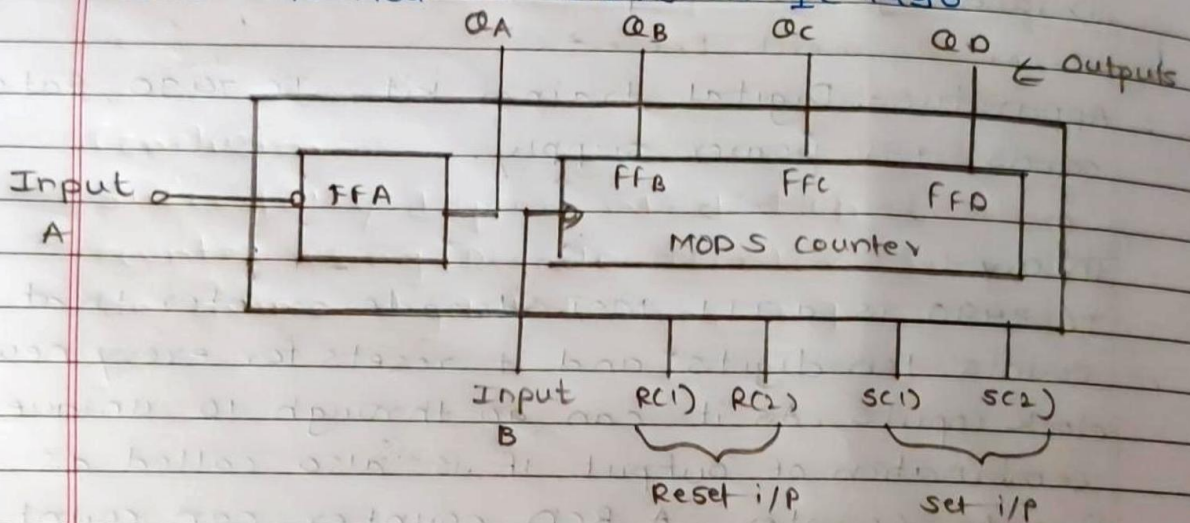 QA QB QC QD ← Outputs
Input A
FFA
FFB FFC FFD
MOD 5 counter
Input B
R(1) R(2) S(1) S(2)
Reset i/p set i/p